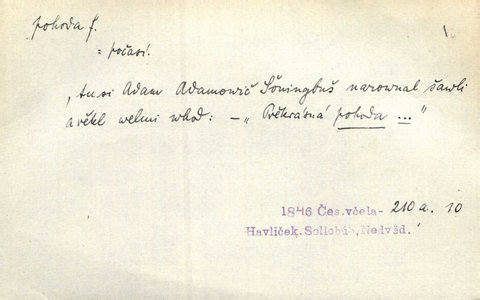 pohoda f.
= počasí.
„Tu si Adam Adamowič Šöningbuš narownal šawli
a řekl welmi whod: – „Překrásná pohoda ..."
1846 Čes. včela - 210 a. 10
Havlíček. Sollohub, Nedvěd.